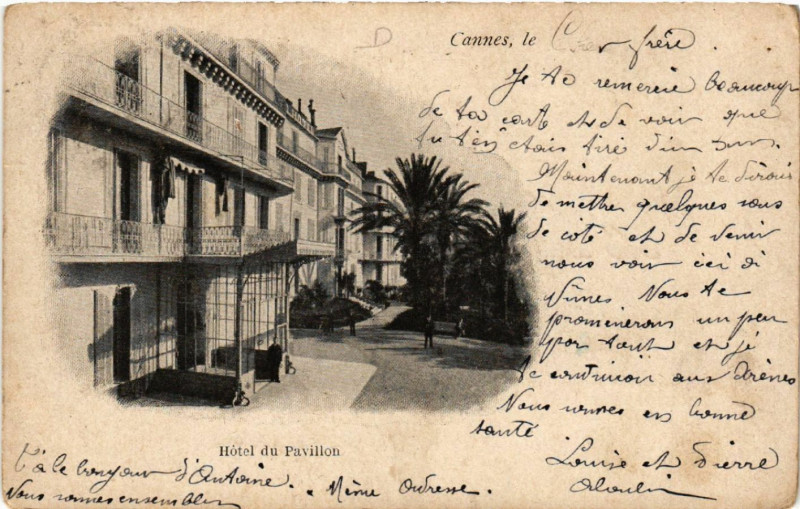 D
Cannes, le Cher frère.
Je te remercie beaucoup
de ta carte et de voir que
tu t'en étais tiré d'un
Maintenant je te dirais
de mettre quelques sous
de coté et de venir
nous voir ici à
Nîmes Nous te
promènerons un peu
par tout et je
te conduirai aux Arènes
Nous sommes en bonne
santé
Louise et Pierre
Hôtel du Pavillon
le bonjour d'Antoine.
Nous sommes ensembles
Même Adresse.